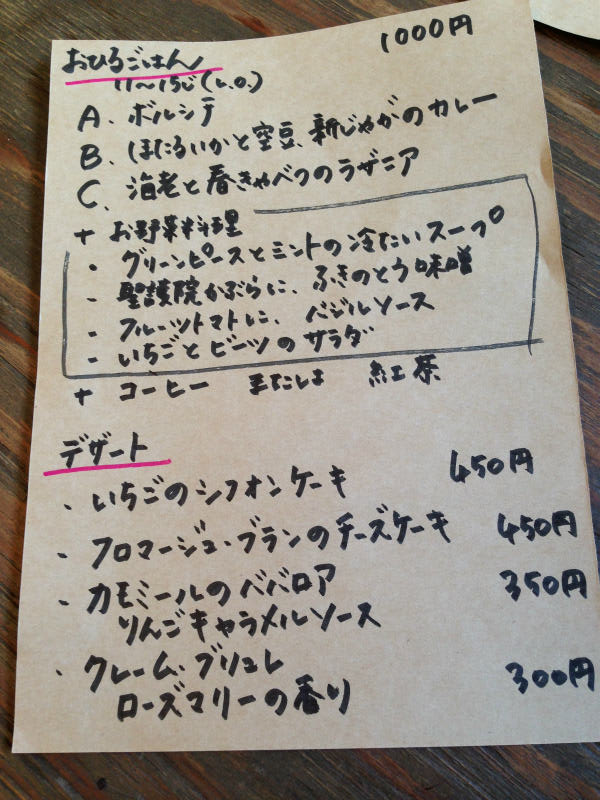 おひるごはん 1000円
11〜15じ(L.O.)
A. ボルシチ
B. ほたるいかと空豆、新じゃがのカレー
C. 海老と春きゃべつのラザニア
+ お野菜料理
- グリーンピースとミントの冷たいスープ
- 聖護院かぶらに、ふきのとう味噌
- フルーツトマトに、バジルソース
- いちごとビーツのサラダ
+ コーヒー または 紅茶
デザート
・いちごのシフォンケーキ 450円
・フロマージュ・ブランのチーズケーキ 450円
・カモミールのババロア 350円
りんごキャラメルソース
・クレーム・ブリュレ
ローズマリーの香り 300円